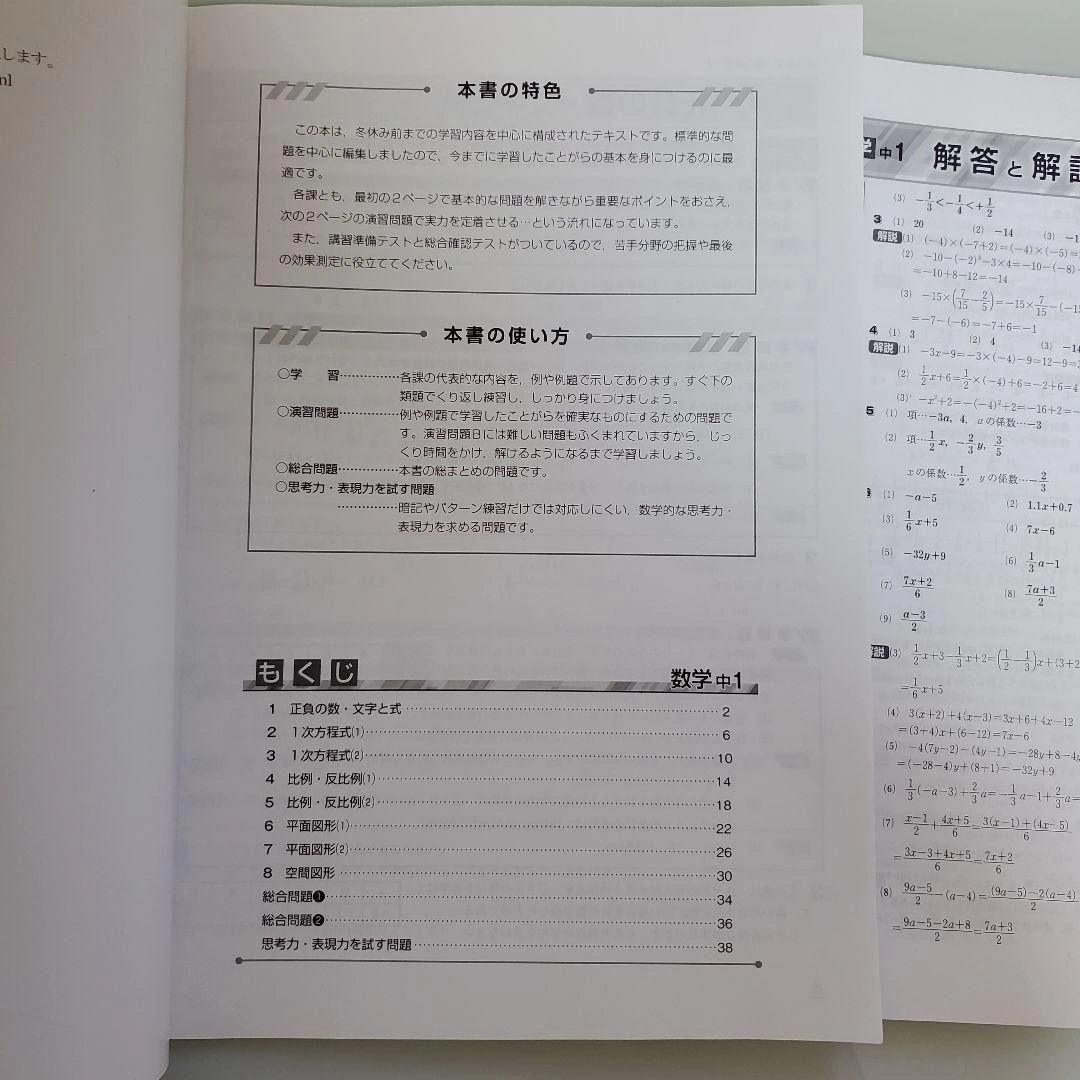 します。
nl
本書の特色
この本は，冬休み前までの学習内容を中心に構成されたテキストです。標準的な問
題を中心に編集しましたので，今までに学習したことがらの基本を身につけるのに最
適です。
各課とも，最初の２ページで基本的な問題を解きながら重要なポイントをおさえ，
次の２ページの演習問題で実力を定着させる…という流れになっています。
また，講習準備テストと総合確認テストがついているので，苦手分野の把握や最後
の効果測定に役立ててください。
本書の使い方
○学　習……………各課の代表的な内容を，例や例題で示してあります。すぐ下の
類題でくり返し練習し，しっかり身につけましょう。
○演習問題……………例や例題で学習したことがらを確実なものにするための問題で
す。演習問題Ｂには難しい問題もふくまれていますから，じっ
くり時間をかけ，解けるようになるまで学習しましょう。
○総合問題……………本書の総まとめの問題です。
○思考力・表現力を試す問題
……………暗記やパターン練習だけでは対応しにくい，数学的な思考力・
表現力を求める問題です。
もくじ
数学 中1
1 正負の数・文字と式……2
2 １次方程式⑴……6
3 １次方程式⑵……10
4 比例・反比例⑴……14
5 比例・反比例⑵……18
6 平面図形⑴……22
7 平面図形⑵……26
8 空間図形……30
総合問題❶……34
総合問題❷……36
思考力・表現力を試す問題……38
中1 解答と解
(3) -1/3<-1/4<+1/2
3 (1) 20 (2) -14 (3) -1
解説 (1) (-4)×(-7+2)=(-4)×(-5)=
(2) -10-(-2)³-3×4=-10-(-8)
=-10+8-12=-14
(3) -15×(7/15-2/5)=-15×7/15-(-15
=-7-(-6)=-7+6=-1
4 (1) 3 (2) 4 (3) -14
解説 (1) -3x-9=-3×(-4)-9=12-9=3
(2) 1/2x+6=1/2×(-4)+6=-2+6=4
(3) -x²+2=-(-4)²+2=-16+2=
5 (1) 項…-3a, 4, aの係数…-3
(2) 項…1/2x, -2/3y, 3/5
xの係数…1/2, yの係数…-2/3
(1) -a-5 (2) 1.1x+0.7
(3) 1/6x+5 (4) 7x-6
(5) -32y+9 (6) 1/3a-1
(7) 7x+2/6 (8) 7a+3/2
(9) a-3/2
解説 (3) 1/2x+3-1/3x+2=(1/2-1/3)x+(3+2
=1/6x+5
(4) 3(x+2)+4(x-3)=3x+6+4x-12
=(3+4)x+(6-12)=7x-6
(5) -4(7y-2)-(4y-1)=-28y+8-4y
=(-28-4)y+(8+1)=-32y+9
(6) 1/3(-a-3)+2/3a=-1/3a-1+2/3a=
(7) x-1/2+4x+5/6=3(x-1)+(4x+5)/6
=3x-3+4x+5/6=7x+2/6
(8) 9a-5/2-(a-4)=(9a-5)-2(a-4)/2
=9a-5-2a+8/2=7a+3/2